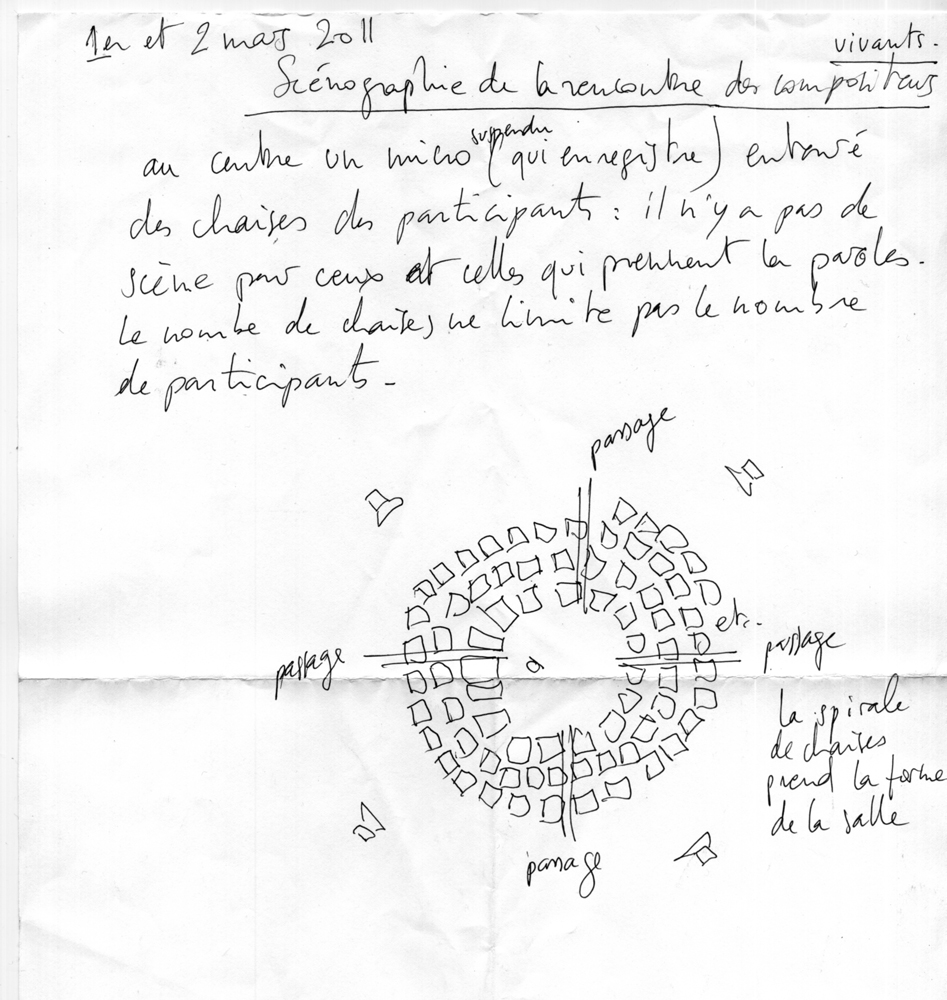 1er et 2 mars 2011
vivants.
Scénographie de la rencontre des compositeurs
suspendu
au centre un micro (qui enregistre) entouré
des chaises des participants : il n'y a pas de
scène pour ceux et celles qui prennent la paroles.
Le nombre de chaises ne limite pas le nombre
de participants -
passage
etc.
passage
passage
passage
La spirale
de chaises
prend la forme
de la salle